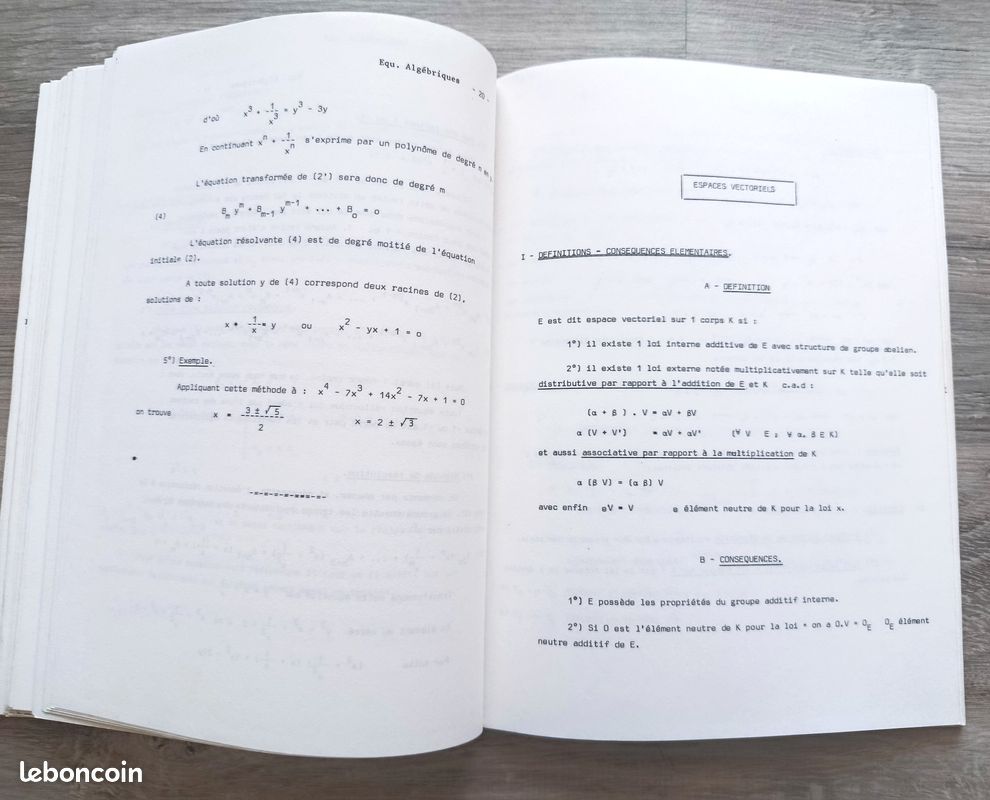 Equ. Algébriques - 20 -
d'où x³ + 1/x³ = y³ - 3y
En continuant xⁿ + 1/xⁿ s'exprime par un polynôme de degré n en
L'équation transformée de (2') sera donc de degré m
(4) Bₘ yᵐ + Bₘ₋₁ yᵐ⁻¹ + ... + B₀ = o
L'équation résolvante (4) est de degré moitié de l'équation
initiale (2).
A toute solution y de (4) correspond deux racines de (2),
solutions de :
x + 1/x = y ou x² - yx + 1 = o
5°) Exemple.
Appliquant cette méthode à : x⁴ - 7x³ + 14x² - 7x + 1 = 0
on trouve x = (3 ± √5)/2 x = 2 ± √3
-=-=-=-=-=-=-=-
ESPACES VECTORIELS
I - DEFINITIONS - CONSEQUENCES ELEMENTAIRES.
A - DEFINITION
E est dit espace vectoriel sur 1 corps K si :
1°) il existe 1 loi interne additive de E avec structure de groupe abelien.
2°) il existe 1 loi externe notée multiplicativement sur K telle qu'elle soit
distributive par rapport à l'addition de E et K c.a.d :
(α + β ) . V = αV + βV
α (V + V') = αV + αV' (∀ V E ; ∀ α, β E K)
et aussi associative par rapport à la multiplication de K
α (β V) = (α β) V
avec enfin eV = V e élément neutre de K pour la loi x.
B - CONSEQUENCES.
1°) E possède les propriétés du groupe additif interne.
2°) Si O est l'élément neutre de K pour la loi + on a O.V = O_E O_E élément
neutre additif de E.
leboncoin